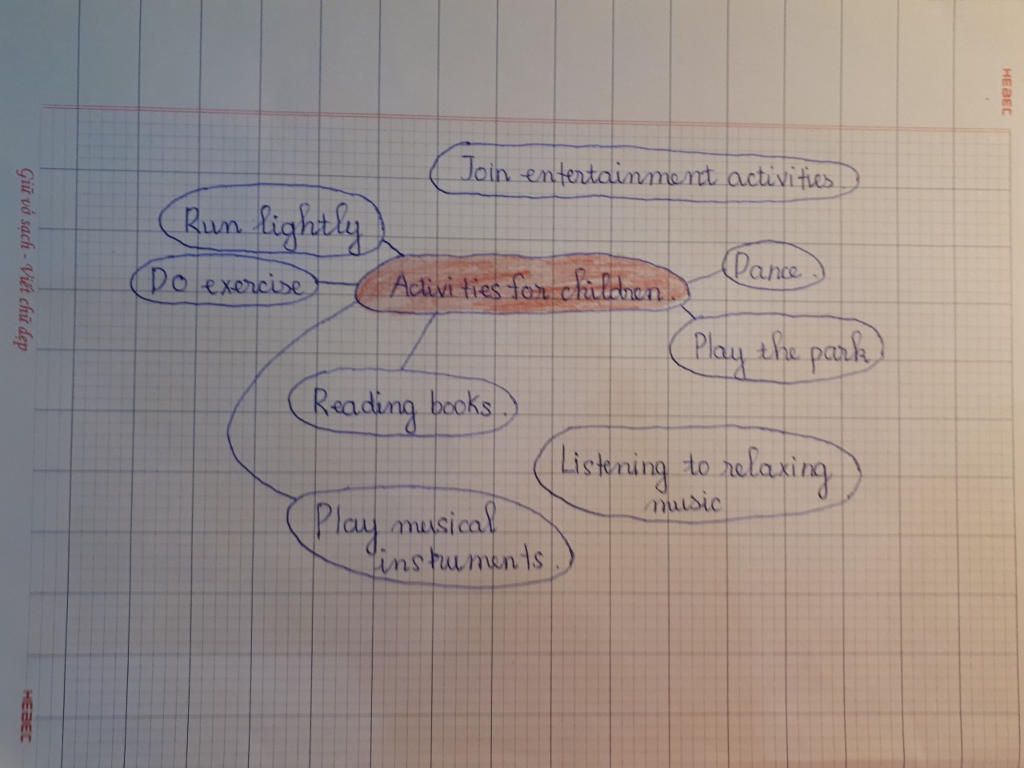 HEBEC
Join entertainment activities
Run lightly
Do exercise
Activities for children.
Dance.
Play the park
Reading books.
Listening to relaxing
music
Play musical
instruments.
Giữ vở sạch - Viết chữ đẹp
HEBEC